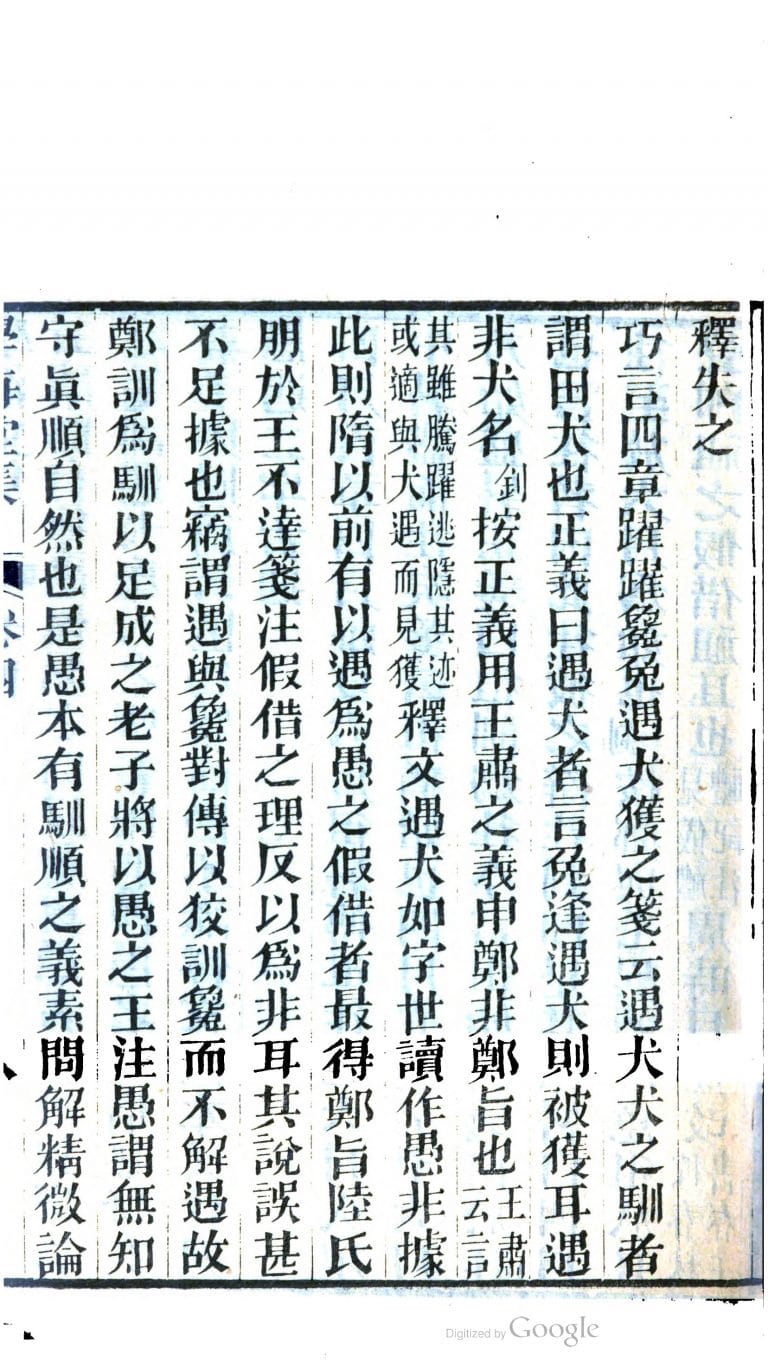 釋失之
巧言四章躍躍毚兔遇犬獲之箋云遇犬犬之馴者
謂田犬也正義曰遇犬者言兔逢遇犬則被獲耳遇
非犬名釗按正義用王肅之義申鄭非鄭旨也王肅云言
其雖騰躍逃隱其迹或適與犬遇而見獲釋文遇犬如字世讀作愚非據
此則隋以前有以遇爲愚之假借者最得鄭旨陸氏
朋於王不達箋注假借之理反以爲非耳其說誤甚
不足據也竊謂遇與毚對傳以狡訓毚而不解遇故
鄭訓爲馴以足成之老子將以愚之王注愚謂無知
守眞順自然也是愚本有馴順之義素問解精微論
Digitized by Google